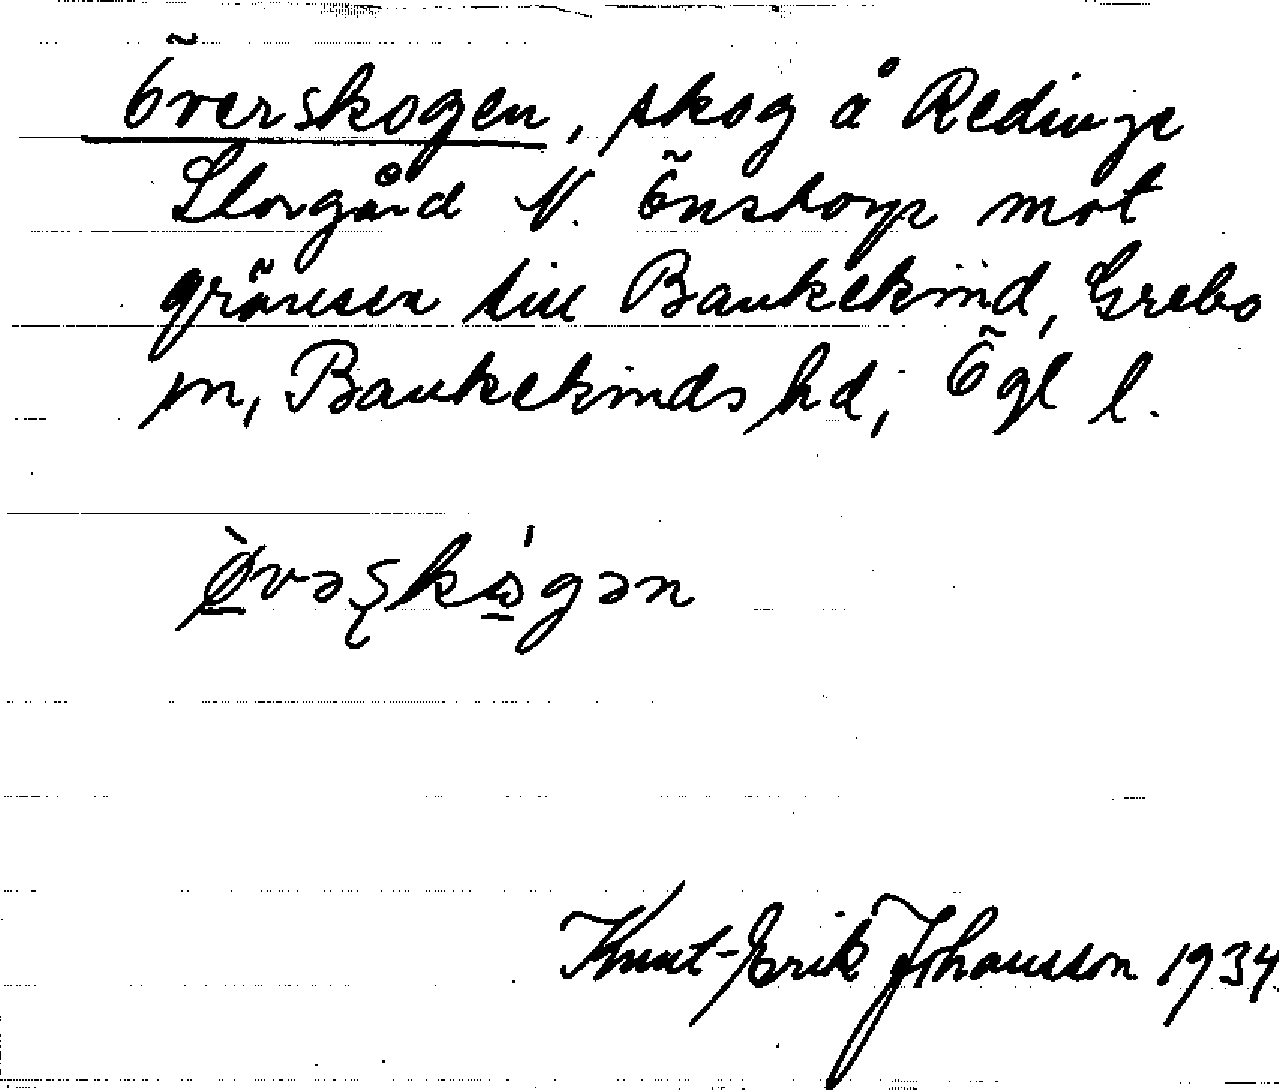 Överskogen, skog å Redinge
Storgård N. Önstorp mot
gränsen till Bankekind, Grebo
sn, Bankekinds hd, Ögl l.
Knut-Erik Johansson 1934.